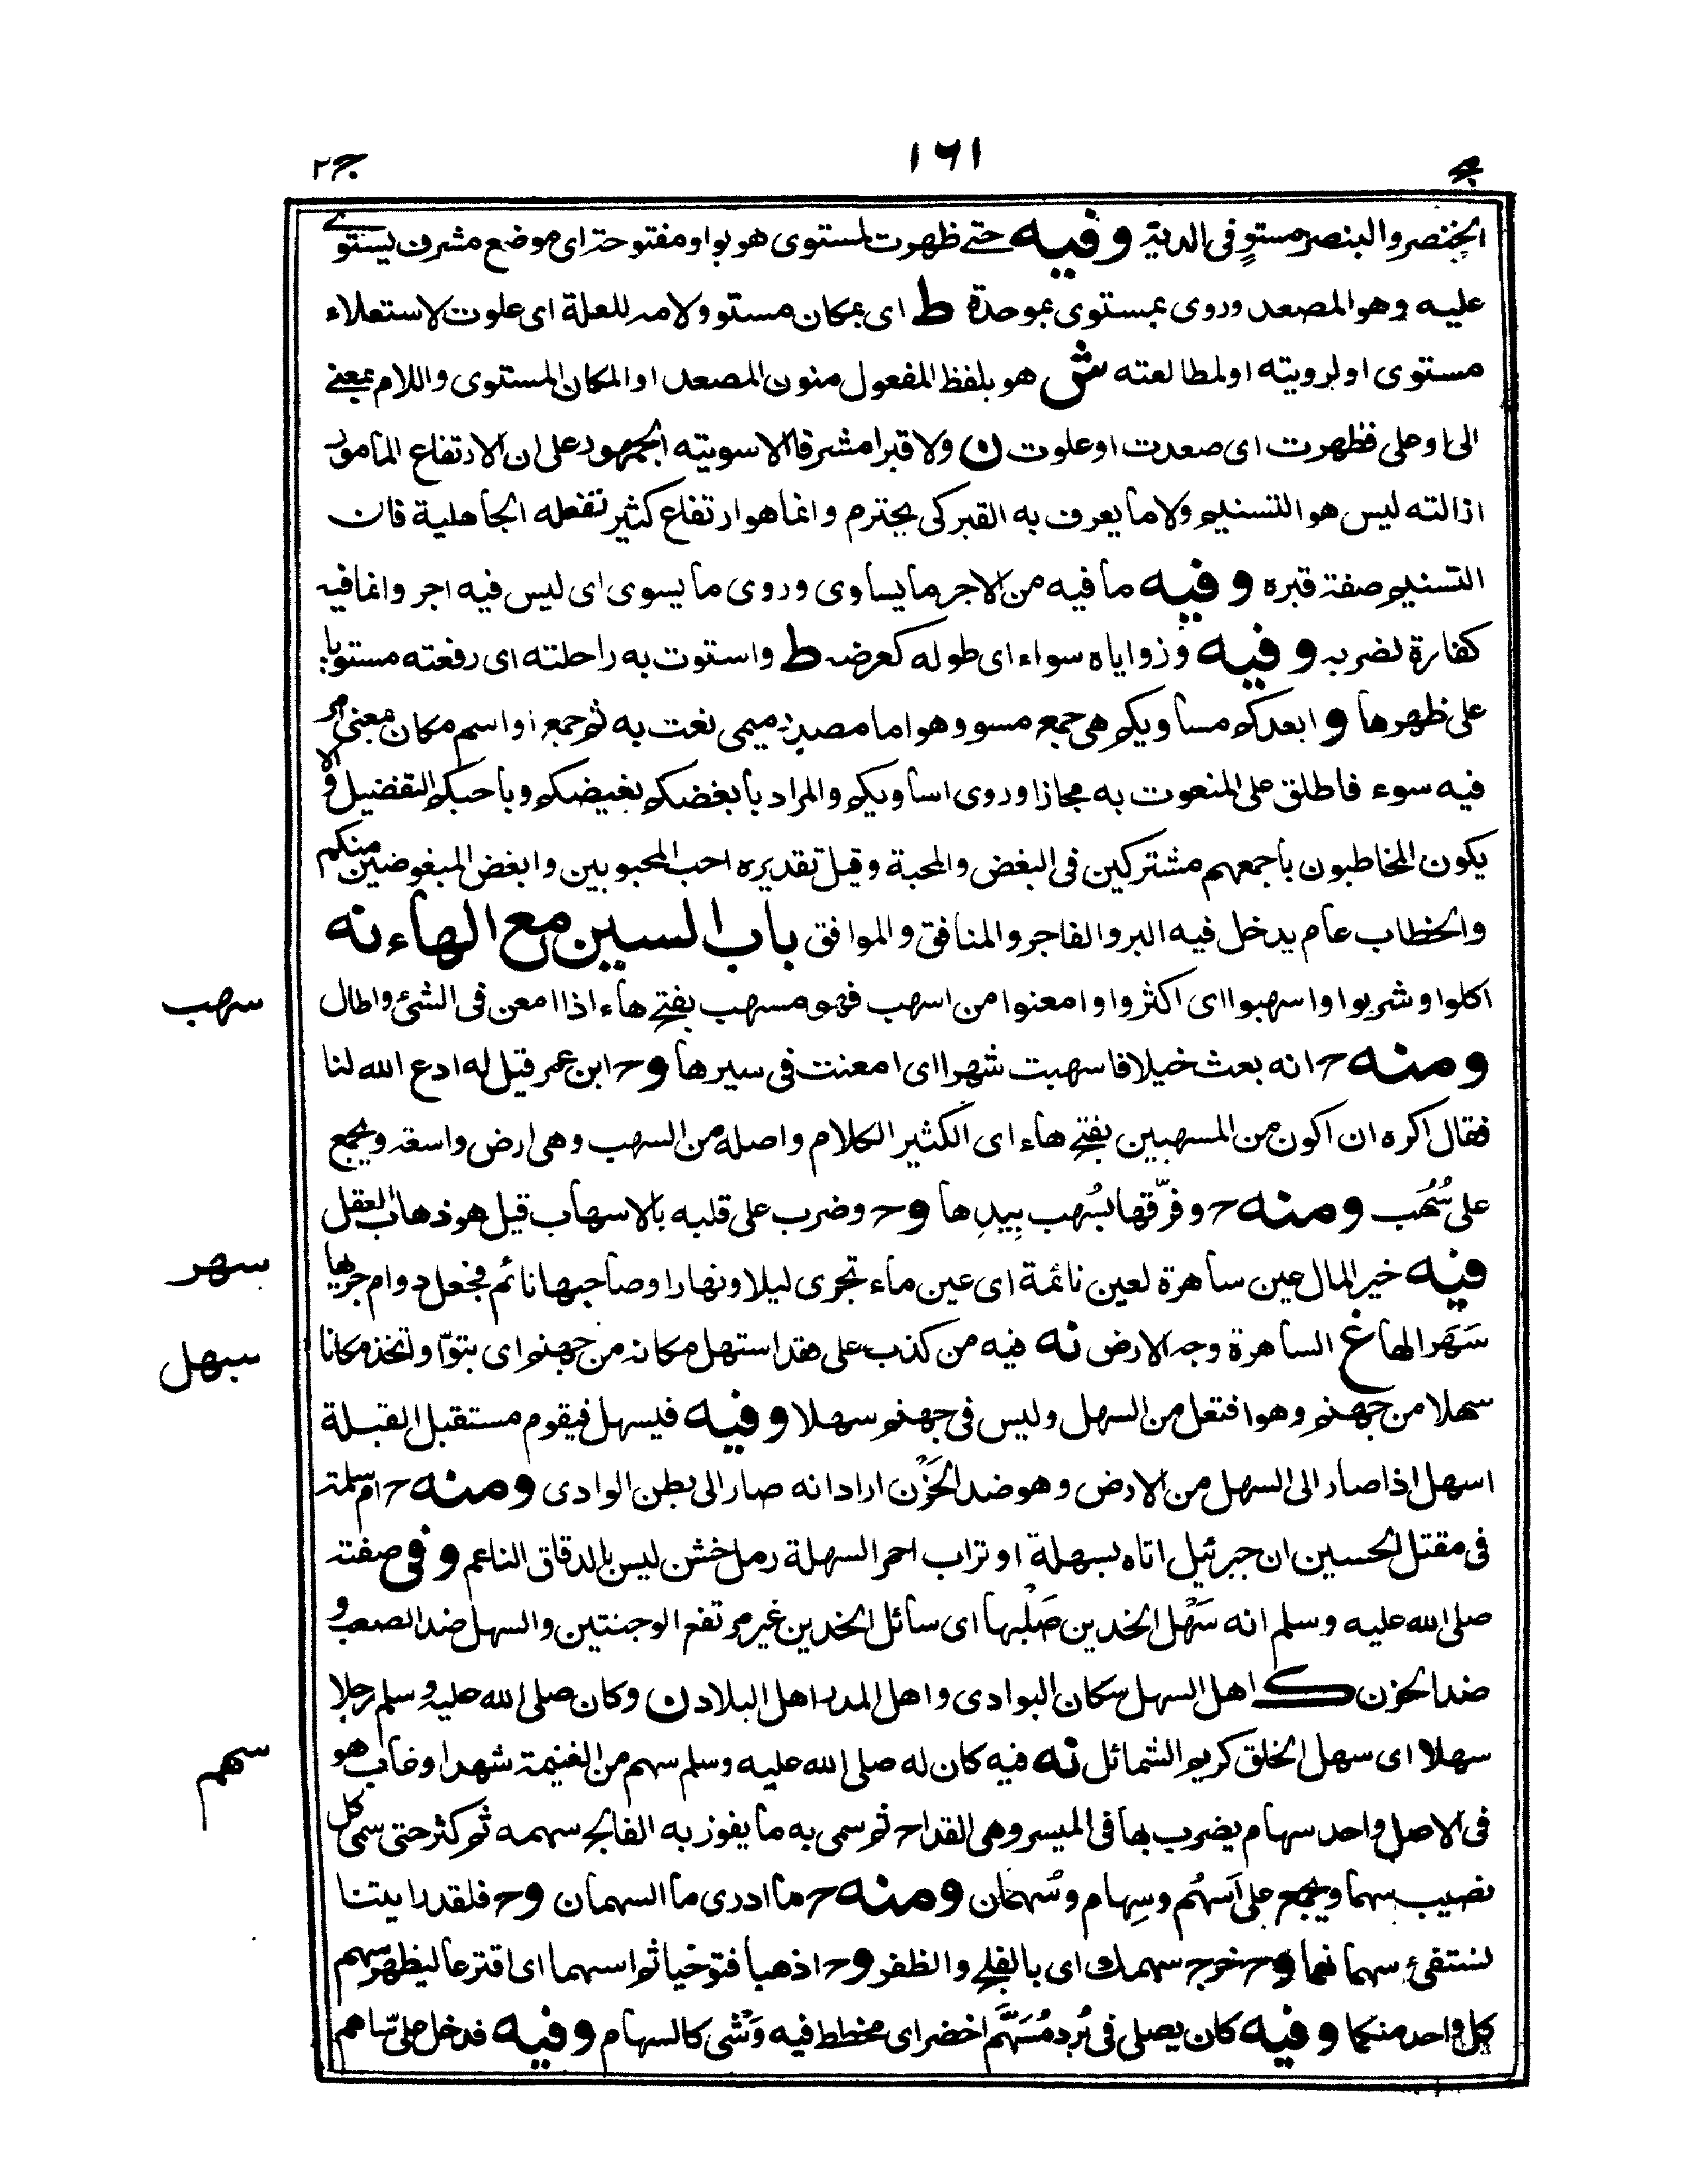 ج ١٦١ ج٢
الخنصر والبنصر مستوٍ فى الدية وفيه حتے ظهرت لمستوى هو بواو مفتوحة اى موضع مشرف يستوے
عليه وهو المصعد وروى بمستوى بموحدة ط اى بمكان مستو ولامه للعلة اى علوت لاستعلاء
مستوى او لرويته او لمطالعته ش هو بلفظ المفعول منون المصعد او المكان المستوى واللام بمعنے
الى او على فظهرت اى صعدت او علوت ن ولا قبرا مشرفا الا سويته الجمهور على ان الارتفاع المامور
ازالته ليس هو التسنيم ولا ما يعرف به القبر كى يحترم وانما هو ارتفاع كثير تفعله الجاهلية فان
التسنيم صفة قبره وفيه ما فيه من الاجر ما يساوى وروى ما يسوى اى ليس فيه اجر وانما فيه
كفارة لضربه وفيه وزواياه سواء اى طوله كعرضه ط واستوت به راحلته اى رفعته مستويا
على ظهرها وابعدكم مساويكم هى جمع مسوو هو اما مصدر ميمى نعت به ثم جمع او اسم مكان بمعنى امر
فيه سوء فاطلق على المنعوت به مجازا وروى اساويكم والمراد بابغضكم بغيضكم وباحبكم التفضيل والا
يكون المخاطبون باجمعهم مشتركين فى البغض والمحبة وقيل تقديره احب المحبوبين وابغض المبغوضين منكم
والخطاب عام يدخل فيه البر والفاجر والمنافق والموافق باب السين مع الهاء نه
اكلوا وشربوا واسهبوا اى اكثروا وامعنوا من اسهب فهو مسهب بفتح هاء اذا امعن فى الشئ واطال
سهب
ومنه ح انه بعث خيلا فاسهبت شهرا اى امعنت فى سيرها وح ابن عمر قيل له ادع الله لنا
فقال اكره ان اكون من المسهبين بفتح هاء اى الكثير الكلام واصله من السهب وهى ارض واسعة ويجمع
على سُهُب ومنه ح وفرّقها بسُهب بِيدِها وح وضرب على قلبه بالاسهاب قيل هو ذهاب العقل
فيه خير المال عين ساهرة لعين نائمة اى عين ماء تجرى ليلا ونهارا وصاحبها نائم فجعل دوام جريها
سهر
سَهَرا لها غ الساهرة وجه الارض نه فيه من كذب على فقد استهل مكانه من جهنم اى بتوّا واتخذ مكانا
سهل
سهلا من جهنم وهو افتعل من السهل وليس فى جهنم سهلا وفيه فيسهل فيقوم مستقبل القبلة
اسهل اذا صار الى السهل من الارض وهو ضد الحَزْن اراد انه صار الى بطن الوادى ومنه ح ام سلمة
فى مقتل الحسين ان جبرئيل اتاه بسهلة او تراب احمر السهلة رمل خشن ليس بالدقاق الناعم وفى صفته
صلى الله عليه وسلم انه سَهْل الخدين صَلْبها اى سائل الخدين غير مرتفع الوجنتين والسهل ضد الصعب و
ضد الحزن ك اهل السهل سكان البوادى واهل المدر اهل البلاد ن وكان صلى الله عليه وسلم رجلا
سهلا اى سهل الخلق كريم الشمائل نه فيه كان له صلى الله عليه وسلم سهم من الغنيمة شهد او غاب هو
سهم
فى الاصل واحد سهام يضرب بها فى الميسر وهى القداح ثم سمى به ما يفوز به الفالج سهمه ثم كثر حتى سمى كل
نصيب سهما ويجمع على اَسهُم وسِهام وسُهمان ومنه ح ما ادرى ما السهمان وح فلقد رايتنا
نستفئ سهما نهما وح خرج سهمك اى بالفلج والظفر وح اذهبا فتوخيا ثم استهما اى اقترعا ليظهر سهم
كل واحد منكما وفيه كان يصلى فى بُرد مُسَهَّم اخضر اى مخطط فيه وَشْى كالسهام وفيه فدخل علىّ ساهم